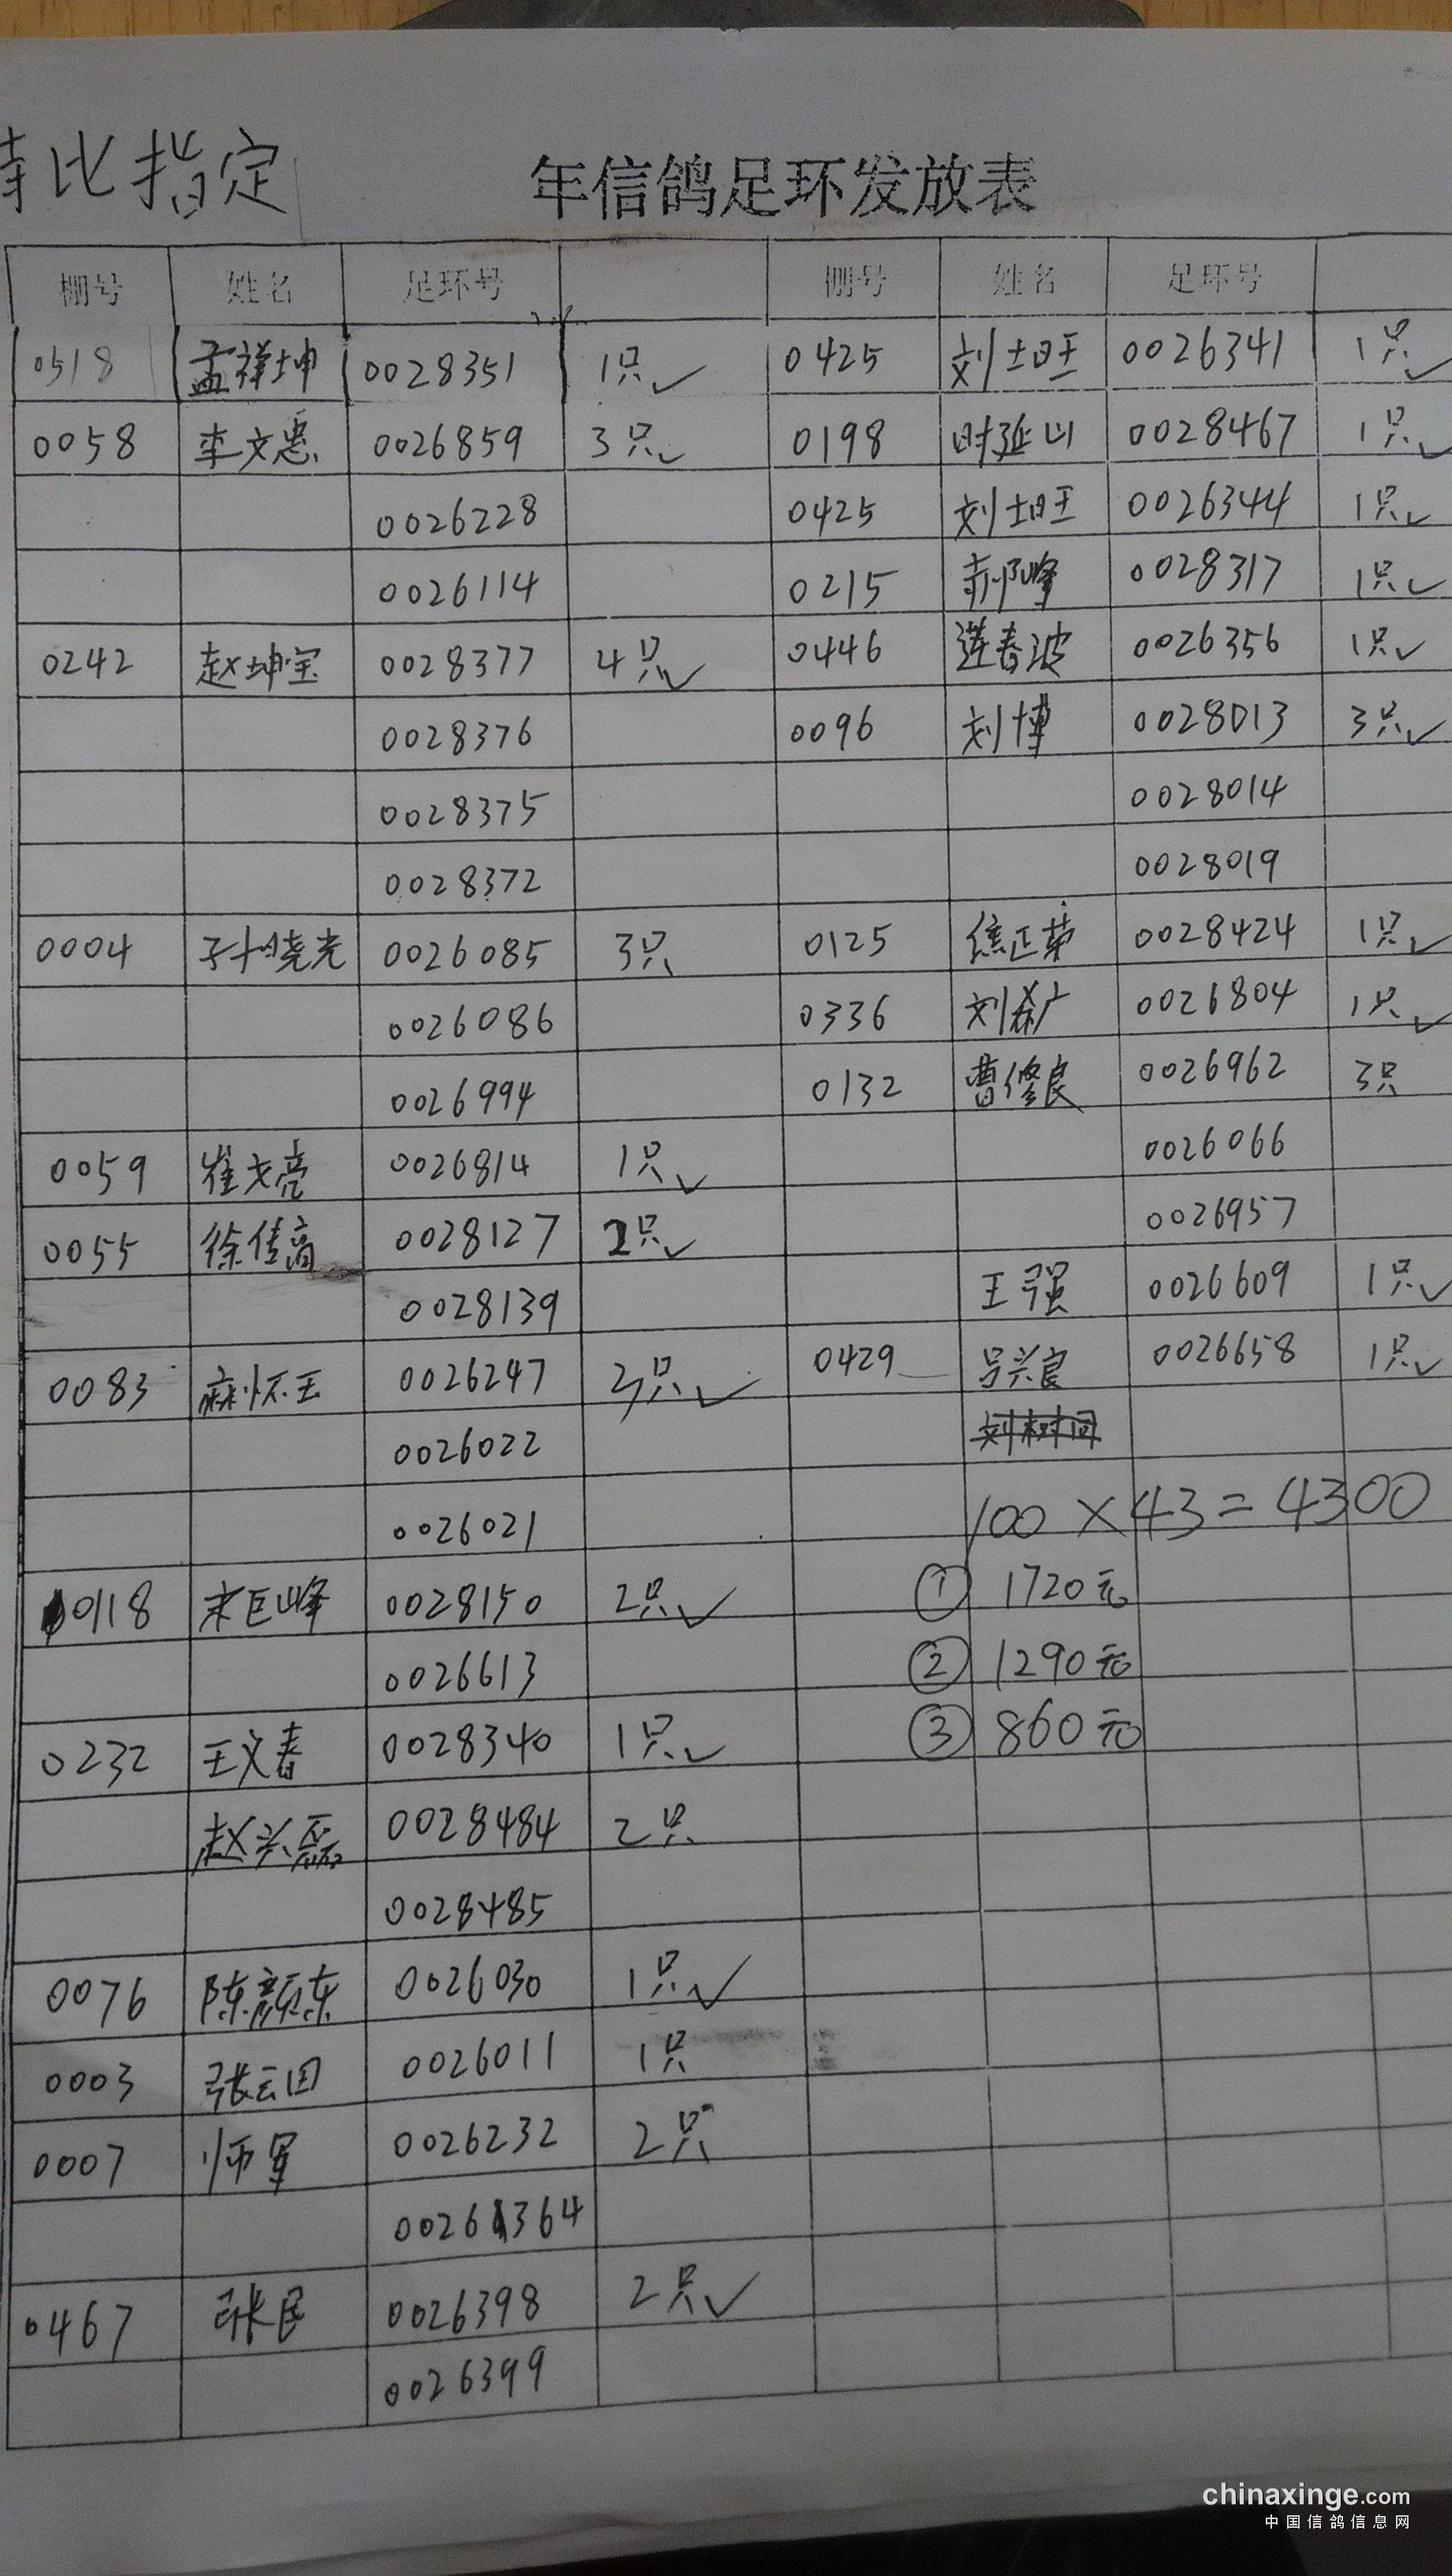 比指定
年信鸽足环发放表
棚号 姓名 足环号 棚号 姓名 足环号
0518 孟祥坤 0028351 1只✓ 0425 刘旺 0026341 1只✓
0058 李文忠 0026859 3只✓ 0198 时延山 0028467 1只✓
0026228 0425 刘旺 0026344 1只✓
0026114 0215 郝峰 0028317 1只✓
0242 赵坤宝 0028377 4只✓ 0446 莲春波 0026356 1只✓
0028376 0096 刘博 0028013 3只✓
0028375 0028014
0028372 0028019
0004 孙晓光 0026085 3只 0125 焦正荣 0028424 1只✓
0026086 0336 刘希广 0026804 1只✓
0026994 0132 曹修良 0026962 3只
0059 崔亮 0026814 1只✓ 0026066
0055 徐传高 0028127 2只✓ 0026957
0028139 王强 0026609 1只✓
0083 麻怀玉 0026247 3只✓ 0429 吕兴良 0026658 1只✓
0026022 刘树同
0026021 100×43=4300
0118 宋巨峰 0028150 2只✓ ① 1720元
0026613 ② 1290元
0232 王文春 0028340 1只✓ ③ 860元
赵兴磊 0028484 2只
0028485
0076 陈颜东 0026030 1只✓
0003 张云田 0026011 1只
0007 师军 0026232 2只
0026364
0467 张民 0026398 2只✓
0026399
chinaxinge.com
中国信鸽信息网